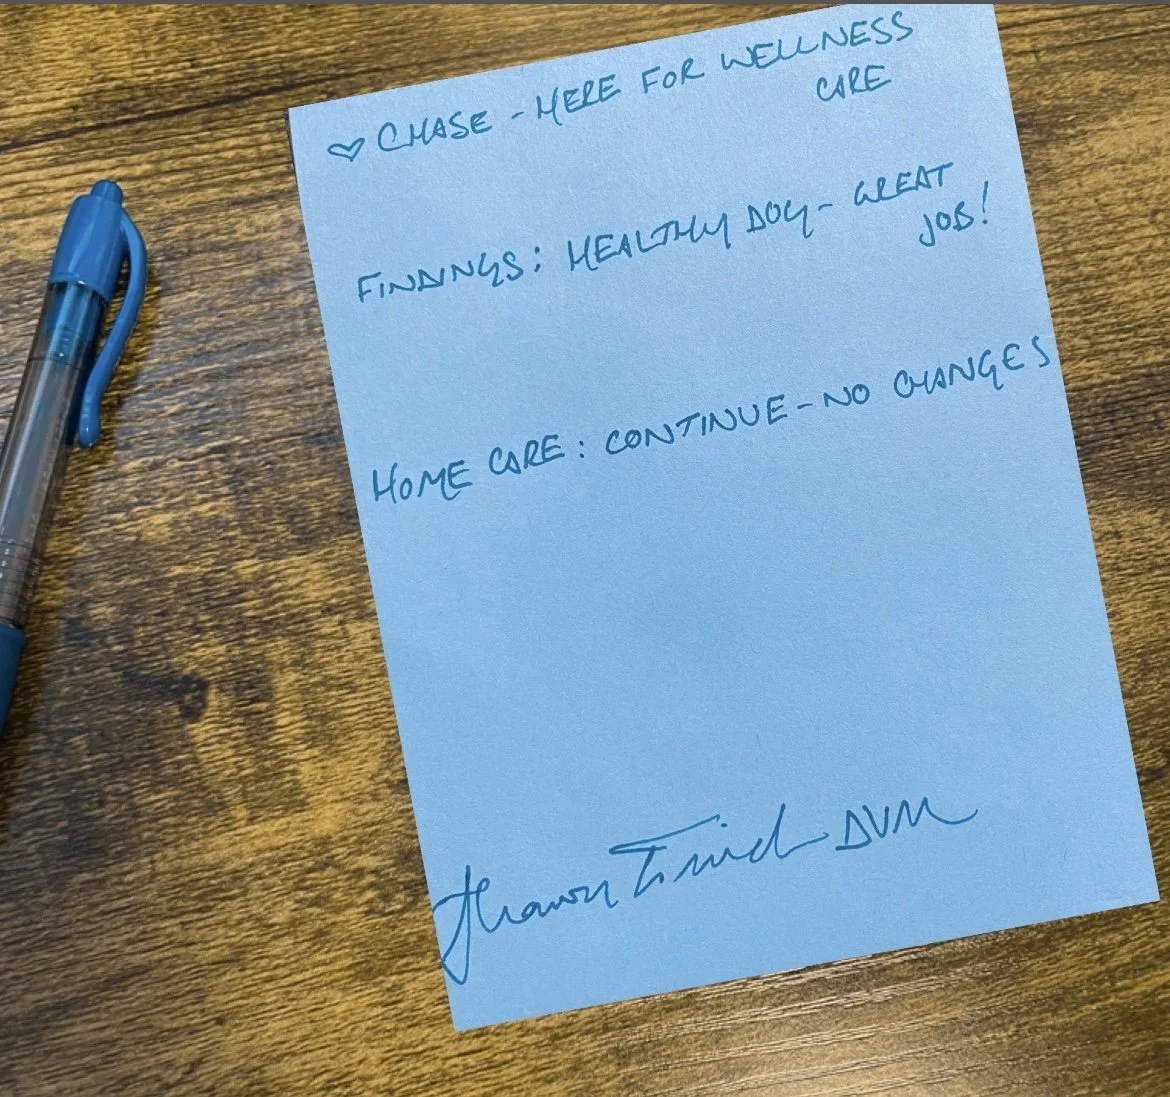 ♡ CHASE - HERE FOR WELLNESS
CARE
FINDINGS: HEALTHY DOG - GREAT
JOB!
HOME CARE: CONTINUE - NO CHANGES
DVM